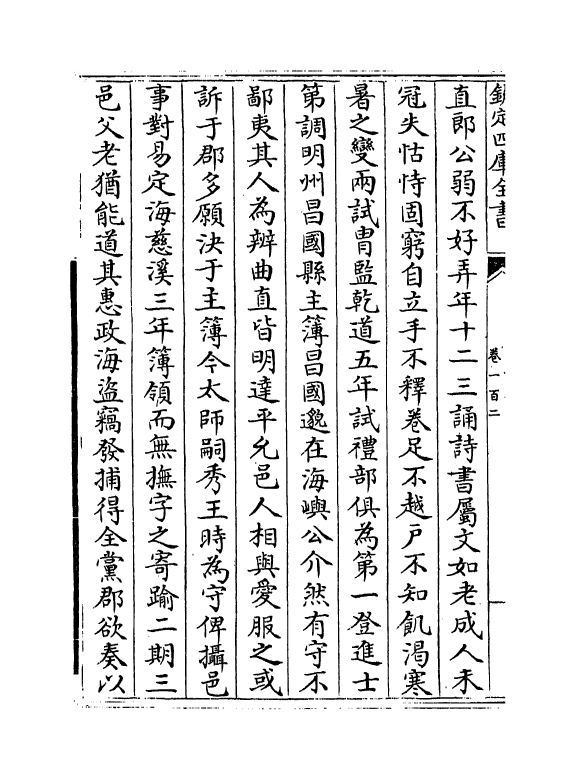 欽定四庫全書
卷一百二
直郎公弱不好弄年十二三誦詩書屬文如老成人未
冠失怙恃固窮自立手不釋卷足不越戸不知飢渴寒
暑之變兩試胄監乾道五年試禮部俱為第一登進士
第調明州昌國縣主簿昌國邈在海嶼公介然有守不
鄙夷其人為辨曲直皆明達平允邑人相與愛服之或
訴于郡多願決于主簿今太師嗣秀王時為守俾攝邑
事對易定海慈溪三年簿領而無撫字之寄踰二期三
邑父老猶能道其惠政海盜竊發捕得全黨郡欲奏以